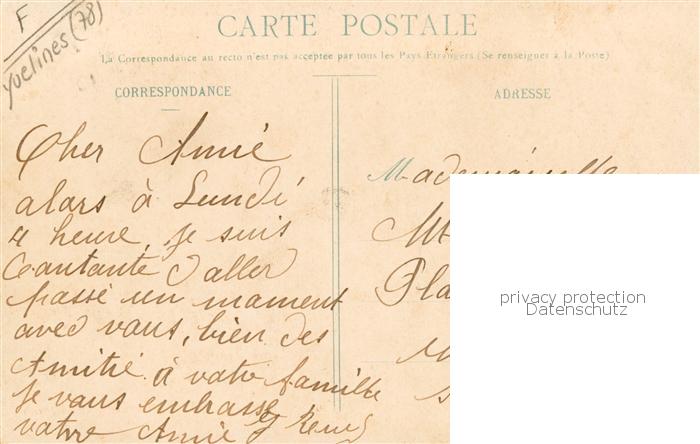 F
Yvelines (78)
CARTE POSTALE
La Correspondance au recto n'est pas acceptée par tous les Pays Etrangers (Se renseigner à la Poste)
CORRESPONDANCE
Cher Amié
alors à Lundi
4 heure, je suis
Ceantante d aller
passé un mament
avec vous, bien des
Amitié à votre famille
Je vous embrasse
votre Amie
ADRESSE
Mademoiselle
privacy protection
Datenschutz